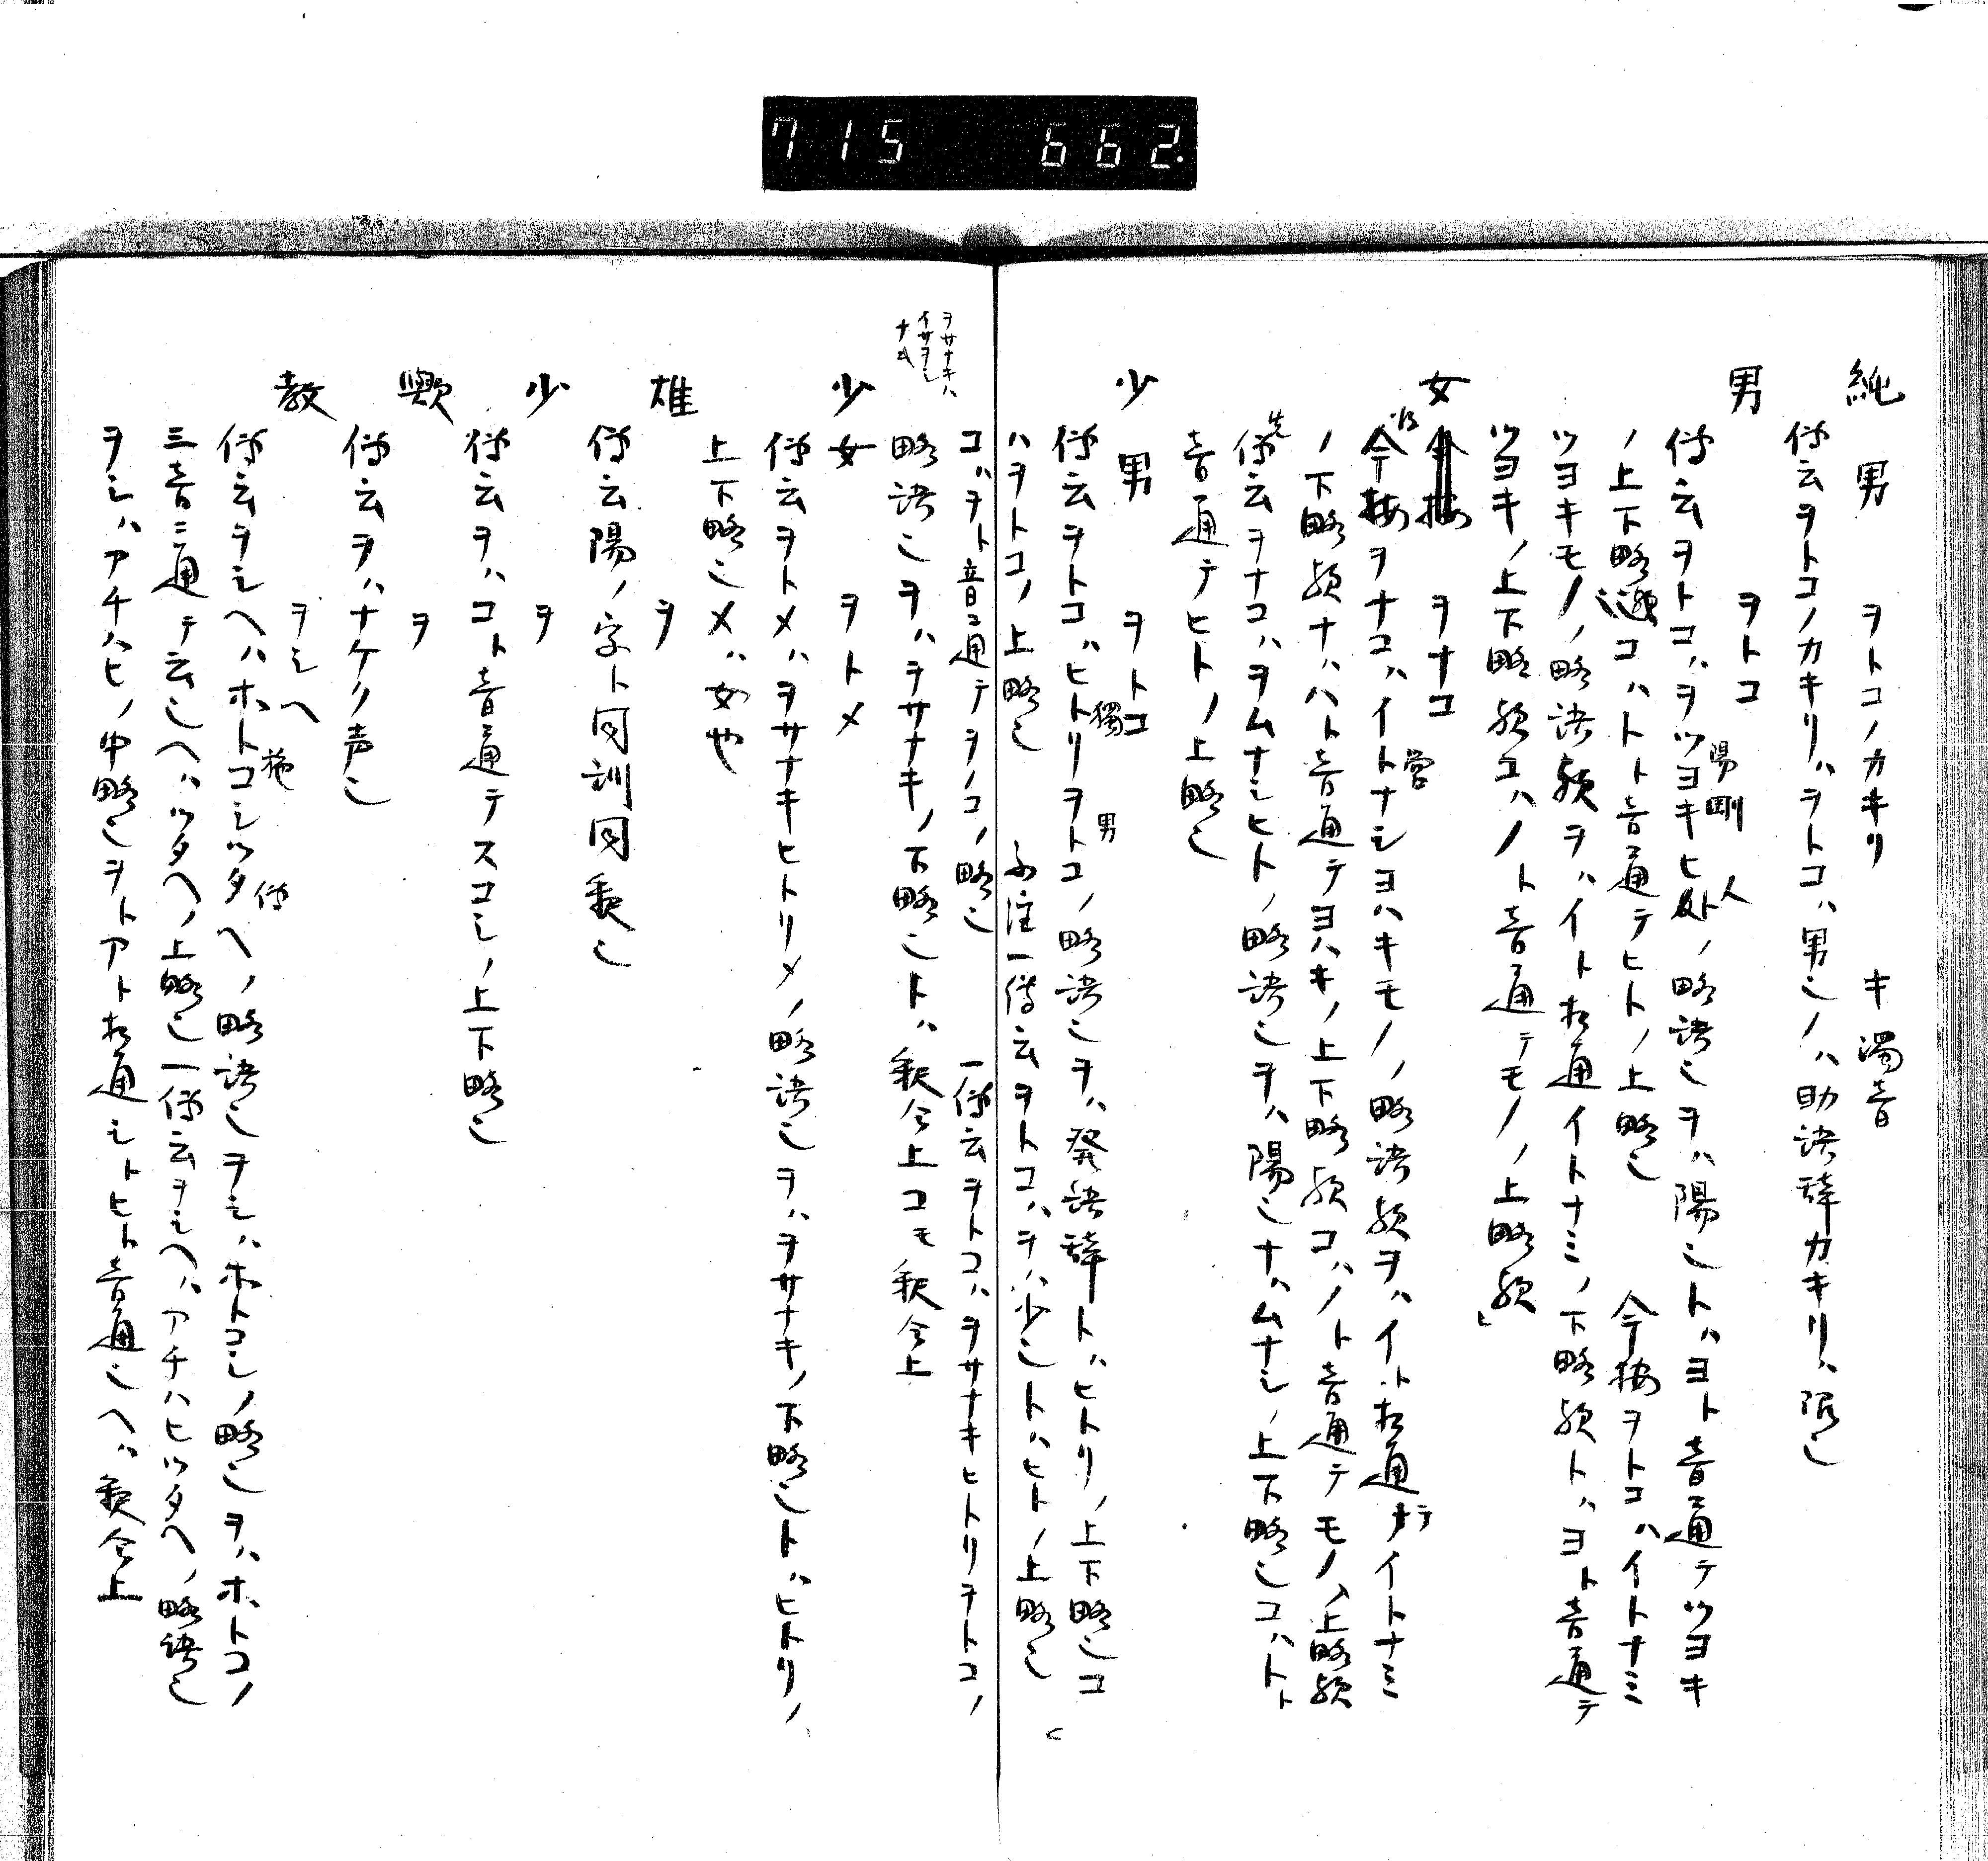 715 662.
純男 ヲトコノカキリ キ濁音
伝云ヲトコノカキリハヲトコハ男也ノハ助語辞カキリハ限也
男 ヲトコ
伝云ヲトコハヲツヨキヒトノ略語也ヲハ陽也トハヨト音通テツヨキ
陽 剛 人
ノ上下略也コハトト音通テヒトノ上略也 今按ヲトコハイトナミ
ツヨキモノノ略語歟ヲハイト相通イトナミノ下略歟トハヨト音通テ
ツヨキノ上下略歟コハノト音通テモノノ上略歟
女 ヲナコ
今按ヲナコハイトナミヨハキモノノ略語歟ヲハイト相通テイトナミ
営
ノ下略歟ナハハト音通テヨハキノ上下略歟コハノト音通テモノノ上略歟
先
伝云ヲナコハヲムナシヒトノ略語也ヲハ陽也ナハムナシノ上下略也コハトト
音通テヒトノ上略也
少男 ヲトコ
伝云ヲトコハヒトリヲトコノ略語也ヲハ発語辞トハヒトリノ上下略也コ
獨 男
ハヲトコノ上略也 不注一伝云ヲトコハヲハ少也トハヒトノ上略也
コハヲト音通テヲノコノ略也 一伝云ヲトコハヲサナキヒトリヲトコノ
略語也ヲハヲサナキノ下略也トハ釈合上コモ釈合上
ヲサナキハ
イサヲシ
ナキ
少女 ヲトメ
伝云ヲトメハヲサナキヒトリメノ略語也ヲハヲサナキノ下略也トハヒトリノ
上下略也メハ女也
雄 ヲ
伝云陽ノ字ト同訓同釈也
少 ヲ
伝云ヲハコト音通テスコシノ上下略也
歟 ヲ
伝云ヲハナケク声也
教 ヲシヘ
伝云ヲシヘハホトコシツタヘノ略語也ヲシハホトコシノ略也ヲハホトコノ
施 伝
三音ニ通テ云也ヘハツタヘノ上略也一伝云ヲシヘハアチハヒツタヘノ略語也
ヲシハアチハヒノ中略也ヲトアト相通シトヒト音通也ヘハ釈合上